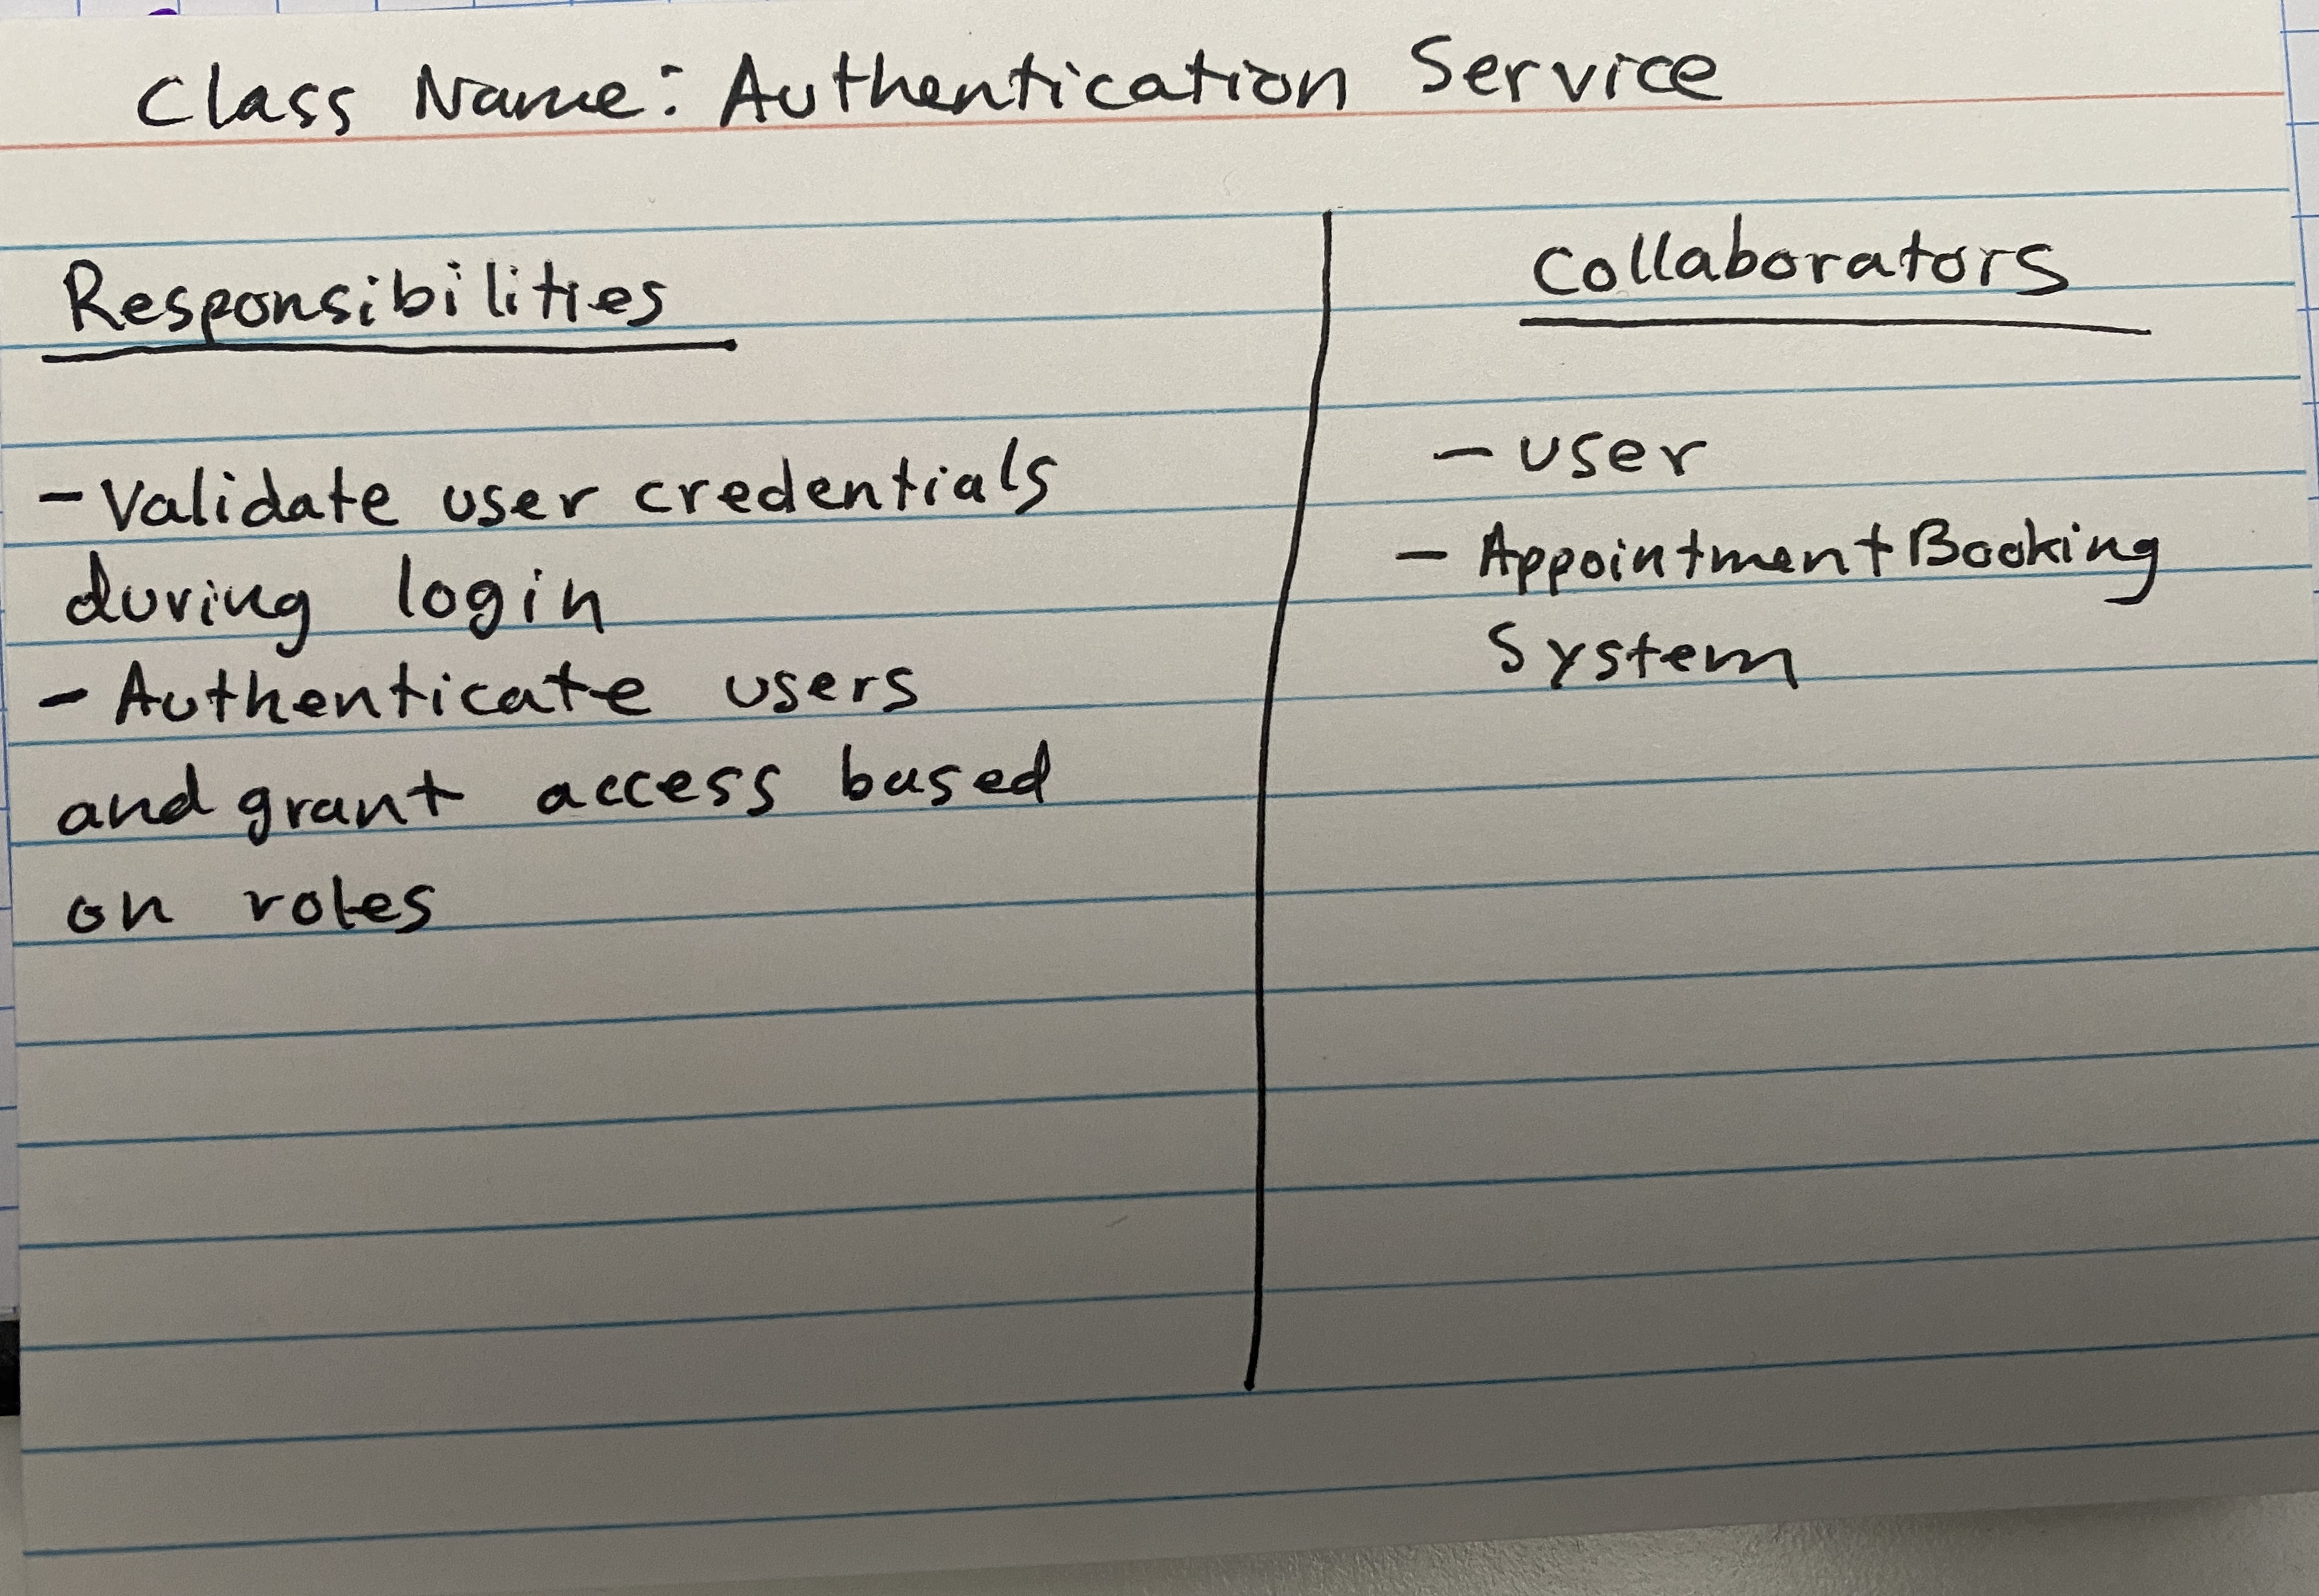 Class Name: Authentication Service
Responsibilities
- Validate user credentials
during login
- Authenticate users
and grant access based
on roles
Collaborators
- user
- Appointment Booking
System